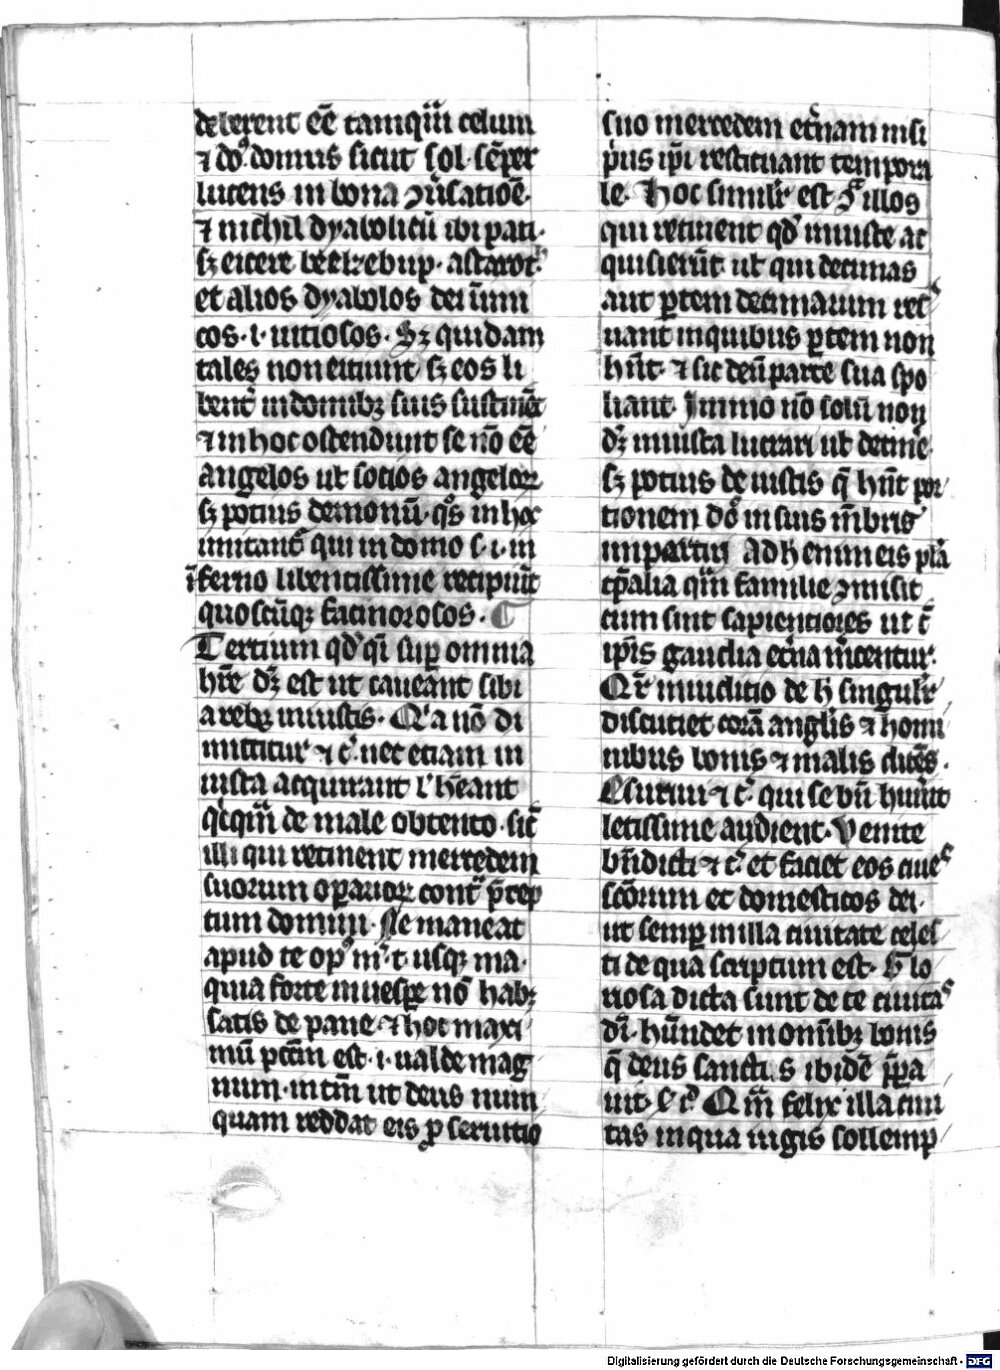 deberent eē tamquā celum
⁊ dō. domus sicut sol. sēper
lucens in bona ꝯūsatiōe.
⁊ nichil dyabolicū ibi pati.
sꝫ eicere beelzebup. astarotʰ.
et alios dyabolos dei inimi
cos. i. uitiosos. Sꝫ quidam
tales non eitiunt sꝫ eos li
bent̄ in domibꝫ suis sustinēt
⁊ in hoc ostendunt se nō eē
angelos ut socios angeloꝝ
sꝫ potius demonū. qͦs in hoc
imitant᷑ qui in domo s. i. in
īferno libentissime recipiūt
quoscūqꝫ facinorosos. ¶
Tertium qd̄ qi sup omnia
hr̄e dꝫ est ut caueant sibi
a rebꝫ iniustis. Qꝛa nō di
mittitur ⁊ c̄. nec etiam in
iusta acquirant l̄ hēant
qͥcqͣm de male obtento. sic̄
illi qui retinent mercedem
suorum operarioꝝ cont̄ p̄cep
tum domini. Ne maneat
apud te opꝰ m̄. t. usqꝫ ma.
quia forte in uespe nō habꝫ
satis de pane. ⁊ hoc maxi
mū pctm̄ est. i. ualde mag
num. in tm̄ ut deus num
quam reddat eis ꝓ seruitio
suo mercedem et̄nam nisi
pͥus ip̄i restituant tempora
le. Hoc simil̄r est ꝯͣ illos
qui retinent qd̄ iniuste ac
quisierūt. ut qui decimas
aut ꝑtem decimarum reti
nant in quibus ꝑtem non
hn̄t. ⁊ sic deū parte sua spo
liant. Immo nō solū non
dꝫ iniusta lucrari ut detine.
sꝫ potius de iustis q̄ hn̄t por
tionem dō in suis m̄bris
impartiri Ad h̄ enim eis pl̄a
tp̄alia qͣm familie ꝯmisit
cum sint sapientiores ut c̄
ip̄is gaudia et̄na m̄centur.
Qr̄ in iuditio de h̄ singul̄r
discutiet corā angl̄is ⁊ homi
nibus bonis ⁊ malis dicēs.
Esuriui ⁊ c̄. qui se bn̄ huerīt
letissime audient. Venite
bn̄dicti ⁊ c̄. et faciet eos ciues
sc̄orum et domesticos dei.
ut semp in illa ciuitate celes
ti de qua scriptum est. Glo
riosa dicta sunt de te ciuitas
dī. hūndet in omībꝫ bonis
q̄ deus sanctis ibidē p̄pa
uit. ⁊ c̄. Qͣm felix illa ciui
tas in qua iugis sollemp
Digitalisierung gefördert durch die Deutsche Forschungsgemeinschaft - DFG